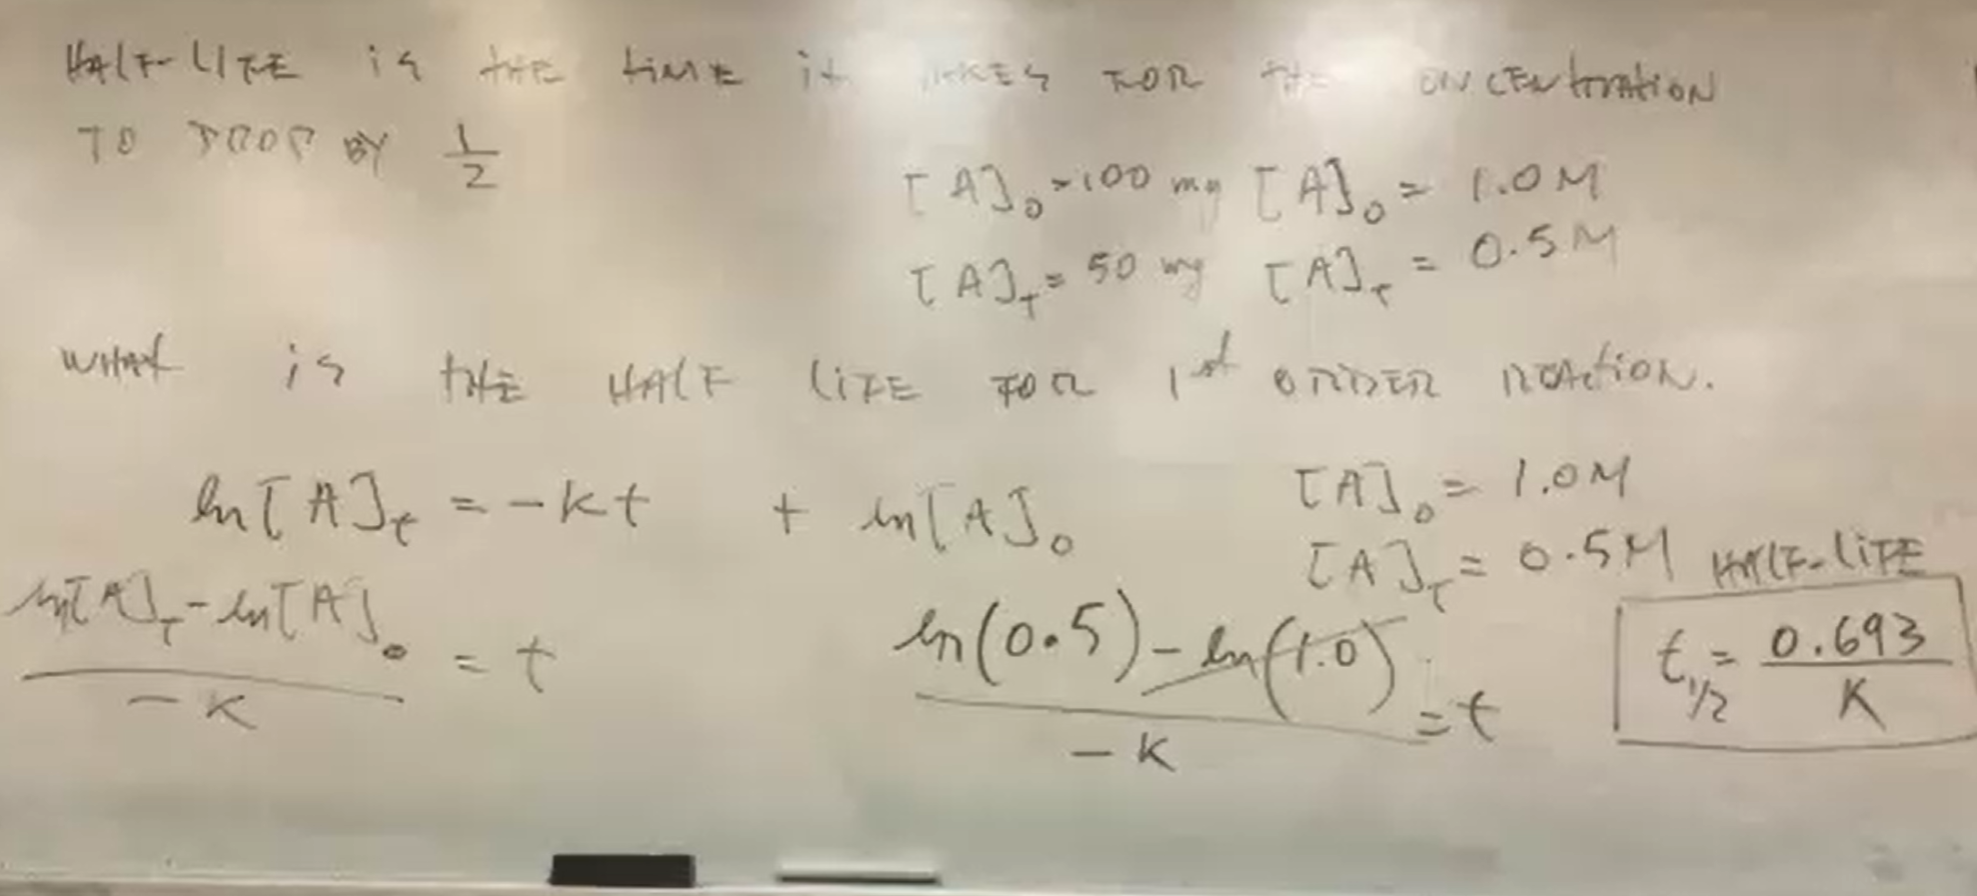 HALF-LIFE is THE TIME it TAKES FOR THE CONCENTRATION
TO DROP BY 1/2
[A]₀ = 100 mg [A]₀ = 1.0M
[A]t = 50 mg [A]t = 0.5M
WHAT is THE HALF LIFE FOR 1st ORDER REACTION.
ln[A]t = -kt + ln[A]₀ [A]₀ = 1.0M
[A]t = 0.5M HALF-LIFE
(ln[A]t - ln[A]₀)/-K = t (ln(0.5) - ln(1.0))/-K = t t1/2 = 0.693/K